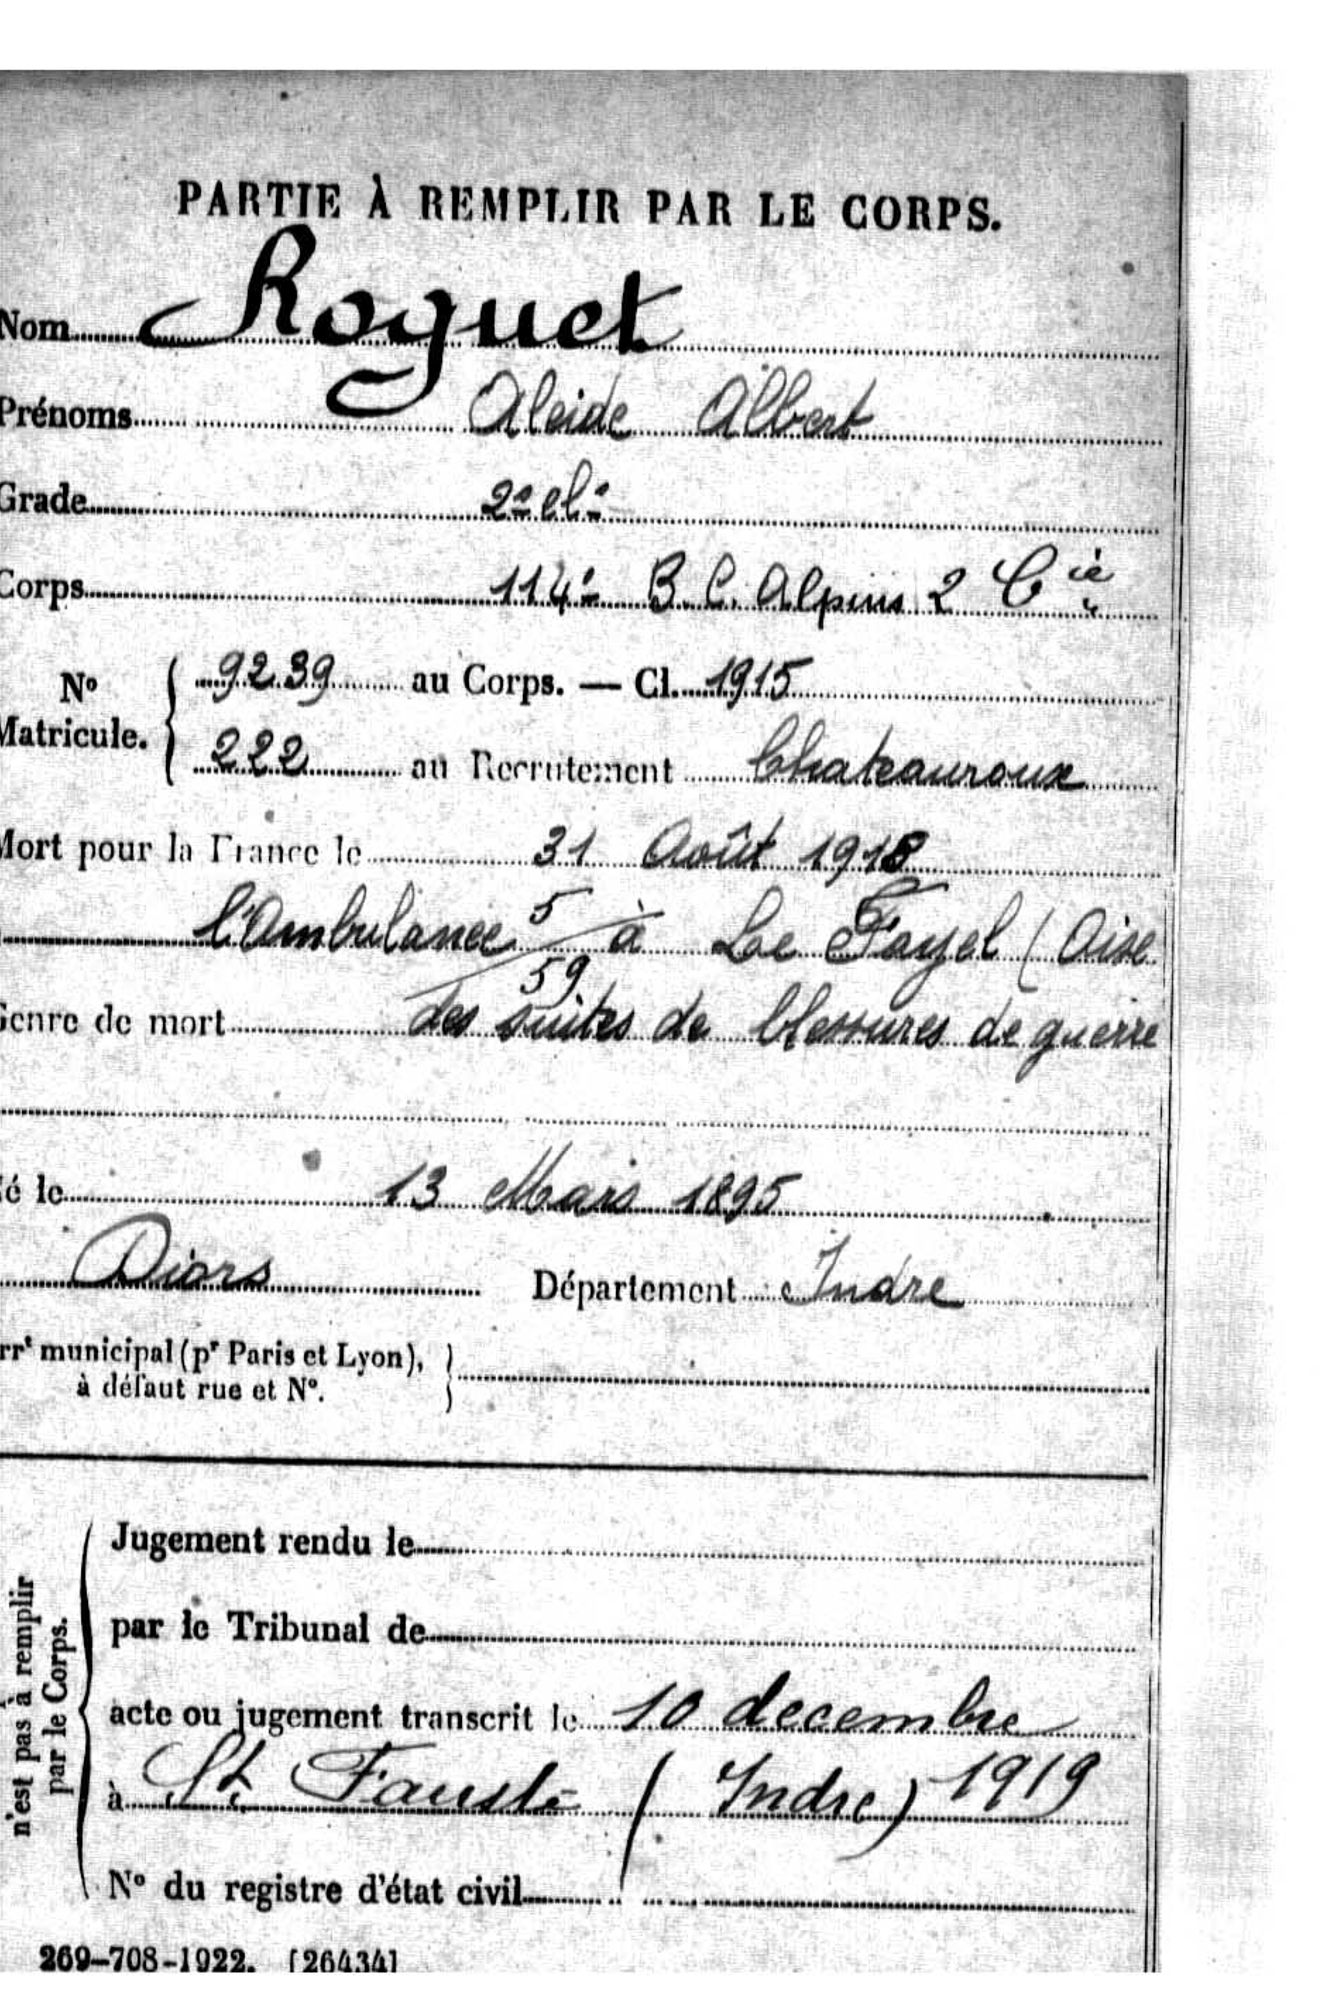 PARTIE À REMPLIR PAR LE CORPS.
Nom Roguet
Prénoms Alcide Albert
Grade 2e cl.
Corps 114e B. C. Alpins 2 Cie
No Matricule. 9239 au Corps. — Cl. 1915
222 au Recrutement Chateauroux
Mort pour la France le 31 Août 1918
l'Ambulance 5/59 à Le Fayel (Oise
Genre de mort des suites de blessures de guerre
é le 13 Mars 1895
Diors Département Indre
rrt municipal (pr Paris et Lyon),
à défaut rue et No.
n'est pas à remplir
par le Corps.
Jugement rendu le
par le Tribunal de
acte ou jugement transcrit le 10 decembre
à St Fauste (Indre) 1919
No du registre d'état civil
269-708-1922. [26434]